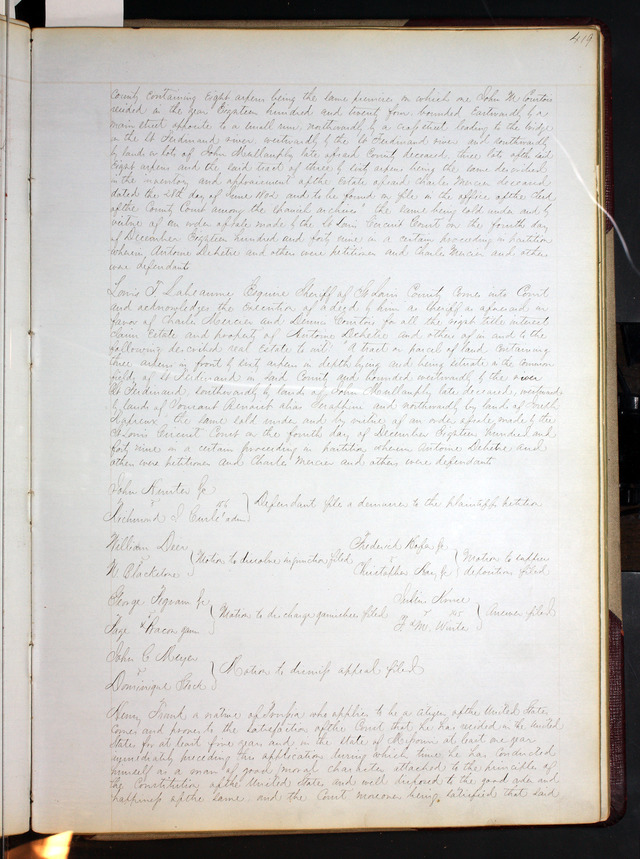 419
County containing Eight arpens being the same premises on which one John M. Courtois
resided in the year Eighteen hundred and twenty four bounded Eastwardly by a
main street opposite to a small run northwardly by a cross street leading to the bridge
on the St Ferdinand river westwardly by the St Ferdinand river and southwardly
by lands or lots of John Mullanphy late of said County deceased three lots of the said
Eight arpens and the said tract of three by sixty arpens being the same described
in the inventory and appraisement of the Estate of said Charles Mercier deceased
dated the 28th day of June and to be found on file in the office of the Clerk
of the County Court among the archives the same being sold under and by
virtue of an order of sale made by the St Louis Circuit Court on the fourth day
of December Eighteen hundred and forty nine in a certain proceeding in partition
wherein Antoine Dehetre and others were petitioners and Charles Mercier and others
were defendants
Louis T. Labeaume Esquire Sheriff of St Louis County comes into Court
and acknowledges the execution of a deed by him as sheriff as aforesaid in
favor of Charles Mercier and Courtois for all the right title interest
claim Estate and property of Antoine Dehetre and others of in and to the
following described real Estate to wit: "A tract or parcel of land containing
three arpens in front by sixty arpens in depth lying and being situate in the common
fields of St Ferdinand in said County and bounded eastwardly by the river
St Ferdinand, southwardly by lands of John Mullanphy late deceased, westwardly
by lands of alias and northwardly by lands of
the same sold under and by virtue of an order of sale made by the
St Louis Circuit Court on the fourth day of December Eighteen hundred and
forty nine in a certain proceeding in partition wherein Antoine Dehetre and
others were petitioners and Charles Mercier and others were defendants
John Hunter Jr
v 106 } Defendant files a demurrer to the plaintiffs petition
Richmond J Curle adm
William Deer
v } Motion to dissolve injunction filed
W Blackstone
Frederick
v } Motion to suppress depositions filed
Christopher
George
v } Motion to discharge garnishees filed
Page & Bacon garn
v 105 } Answer filed
John C Meyer
v } Motion to dismiss appeal filed
Dominique
Henry Frank a native of who applies to be a citizen of the United States
comes and proves to the satisfaction of the Court that he has resided in the United
States for at least five years and in the State of Missouri at least one year
immediately preceding this application during which time he has conducted
himself as a man of good moral character attached to the principles of
the Constitution of the United States and well disposed to the good order and
happiness of the same and the Court moreover being satisfied that said